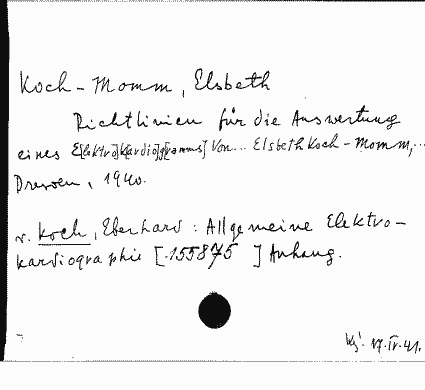 Koch-Momm, Elsbeth
Richtlinien für die Auswertung
eines E[lektro]k[ardio]g[ramms] Von... Elsbeth Koch-Momm,...
Dresden, 1940.
v. Koch, Eberhard: Allgemeine Elektro-
kardiographie [155875 ] Anhang.
17.IV.41.